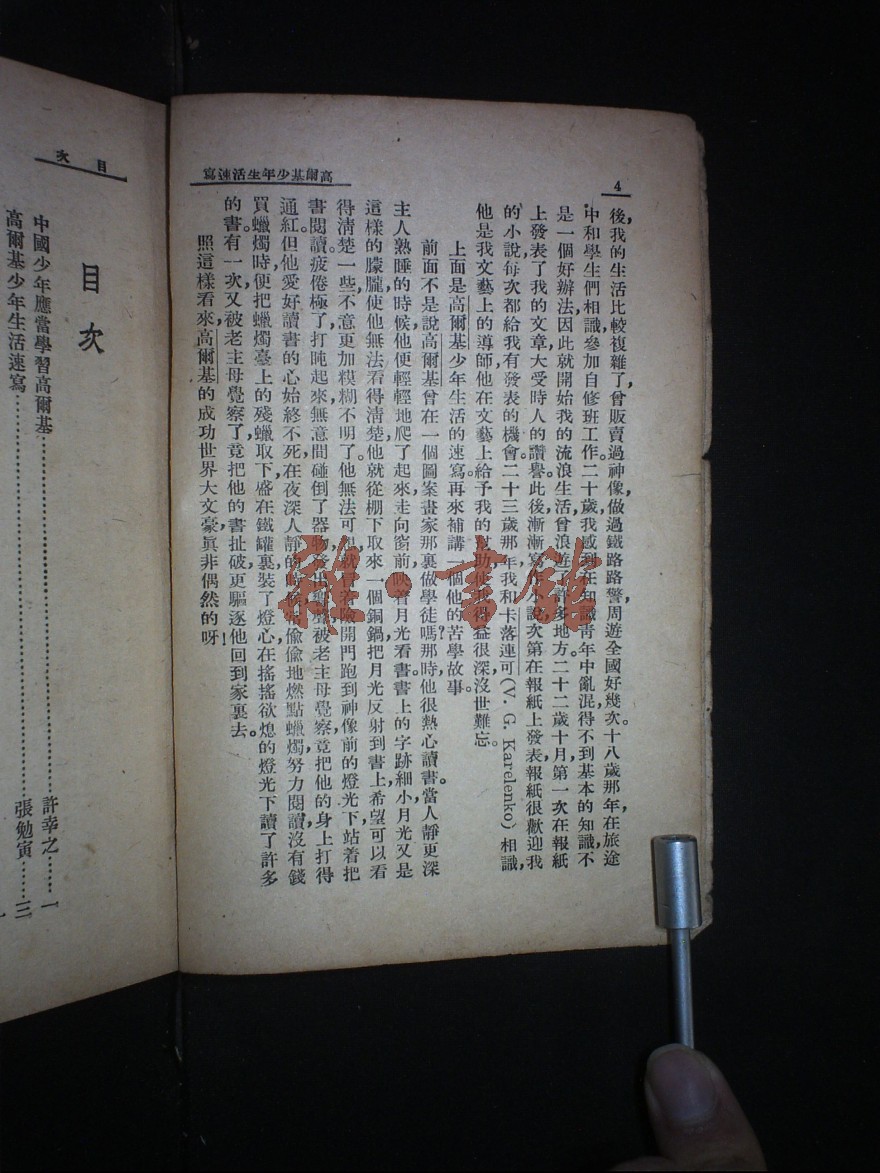 4
高爾基少年生活速寫
後,我的生活比較複雜了,曾販賣過神像,做過鐵路路警,周遊全國好幾次。十八歲那年,在旅途
中和學生們相識,參加自修班工作。二十歲,我感到在知識青年中亂混,得不到基本的知識,不
是一個好辦法,因此就開始我的流浪生活,曾浪遊許多地方。二十二歲十月,第一次在報紙
上發表了我的文章,大受時人的讚譽,此後漸漸寫作小說,次第在報紙上發表,報紙很歡迎我
的小說,每次都給我有發表的機會。二十三歲那年,我和卡落連可(V. G. Karelenko)相識,
他是我文藝上的導師,他在文藝上給予我的幫助,使我得益很深,沒世難忘。
上面是高爾基少年生活的速寫,再來補講一個他的苦學故事。
前面不是說高爾基曾在一個圖案畫家那裏做學徒嗎?那時,他很熱心讀書。當人靜更深,
主人熟睡的時候,他便輕輕地爬了起來,走向窗前,映着月光看書。書上的字跡細小,月光又是
這樣的朦朧,使他無法看得清楚,他就從棚下取來一個銅鍋,把月光反射到書上,希望可以看
得清楚一些,不意更加糢糊不明了。他無法可想,就冒着險,開門跑到神像前的燈光下,站着把
書閱讀。疲倦極了,打盹起來,無意間碰倒了器物,發出聲響,被老主母覺察,竟把他的身上打得
通紅。但他愛好讀書的心始終不死,在夜深人靜的時候,偷偷地燃點蠟燭,努力閱讀,沒有錢
買蠟燭時,便把蠟燭臺上的殘蠟取下,盛在鐵罐裏,裝了燈心,在搖搖欲熄的燈光下,讀了許多
的書。有一次,又被老主母覺察了,竟把他的書扯破,更驅逐他回到家裏去。
照這樣看來,高爾基的成功世界大文豪,眞非偶然的呀!
目次
目次
中國少年應當學習高爾基……許幸之……一
高爾基少年生活速寫……張勉寅……三
雅·書館